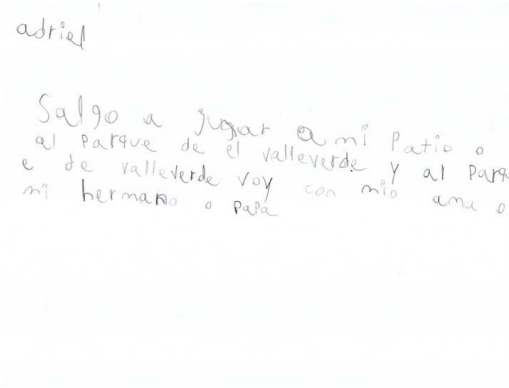 adriel
Salgo a jugar a mi Patio o
al Parque de el valleverde Y al Parq
e de valleverde voy con mio ama o
mi hermano o PaPa